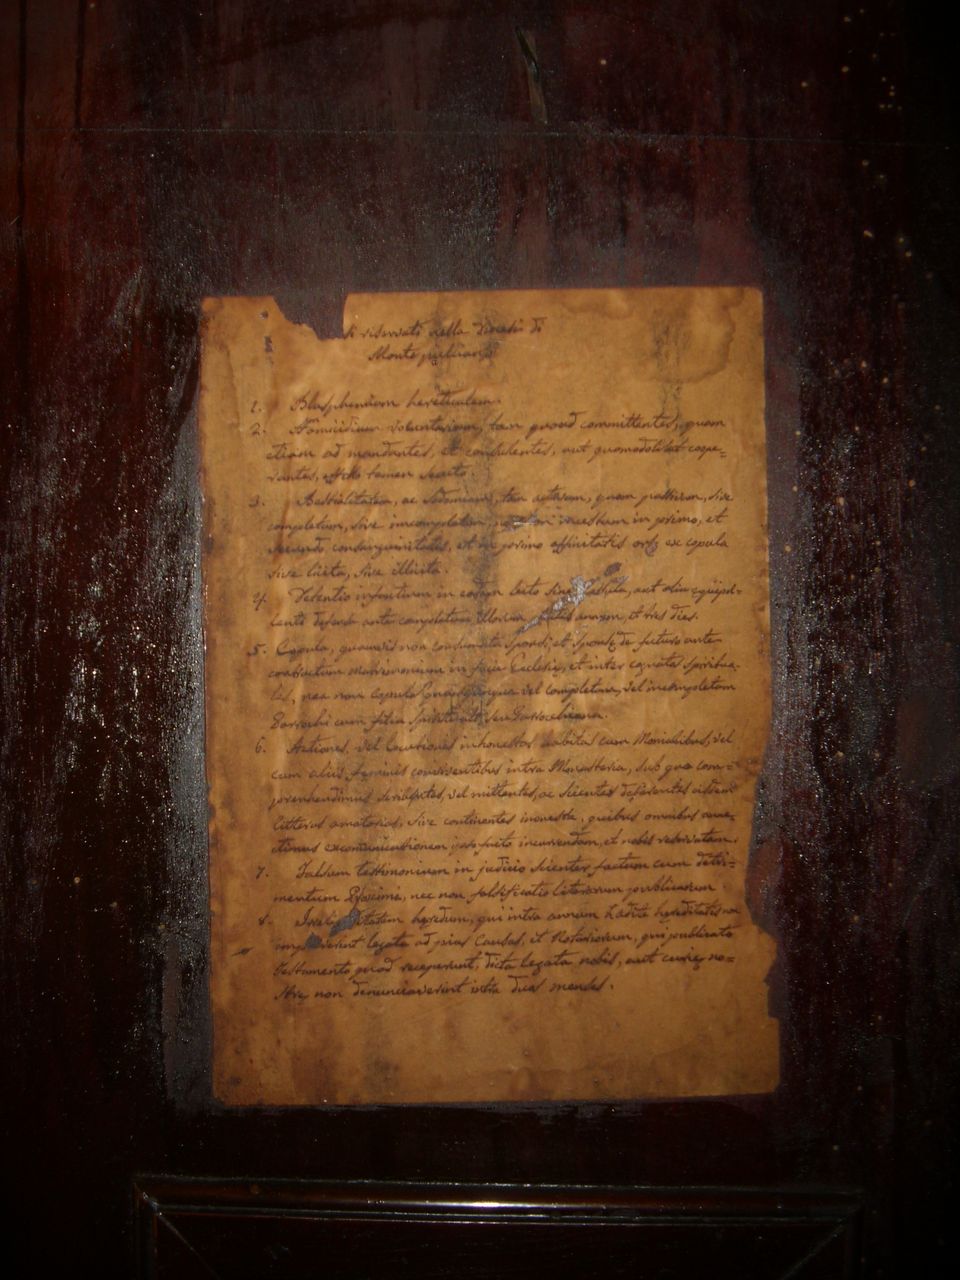 si riservati nella Diocesi di
Monte pulciano
1. Blasphemiam hereticalem.
2. Homicidium voluntarium, tam quoad committentes, quam
etiam ad mandantes, et consulentes, aut quomodolibet coope=
rantes, effectu tamen secuto.
3. Bestialitatem, ac Sodomiam, tam activam, quam passivam, sive
completam, sive incompletam, incestum in primo, et
secundo consanguinitatis, et in primo affinitatis ex copula
sive licita, sive illicita.
4. Detentio infantium in eodem lecto sine, aut alio equipol=
lenti ante completum illorum annum, et tres dies.
5. Copula, quamvis non consumata Sponsi, et Sponsę de futuro ante
contractum matrimonium in facie Ecclesię, et inter cognatos spiritua=
les, nec non copula vel completam, vel incompletam
Parrochi cum filia Spirituali, seu Parrochiana.
6. Actiones, vel locutiones inhonestas habitas cum Monialibus, vel
cum aliis feminis conviventibus intra Monasteria, sub quo com=
prehendimus scribentes, vel mittentes, ac scienter deferentes eisdem
litteras amatorias, sive continentes inonesta, quibus omnibus anne=
ctimus excomunicationem ipso facto incurrendam, et nobis reservatam.
7. Falsum testimonium in judicio scienter factum cum detri=
mentum Proximi, nec non falsificatio literarum publicarum.
8. heredum, qui intra annum hereditatis non
legata ad pias causas, et Notariorum, qui publicato
testamento quod receperunt, dicta legata nobis, aut no=
strę non denunciaverint intra duos menses.